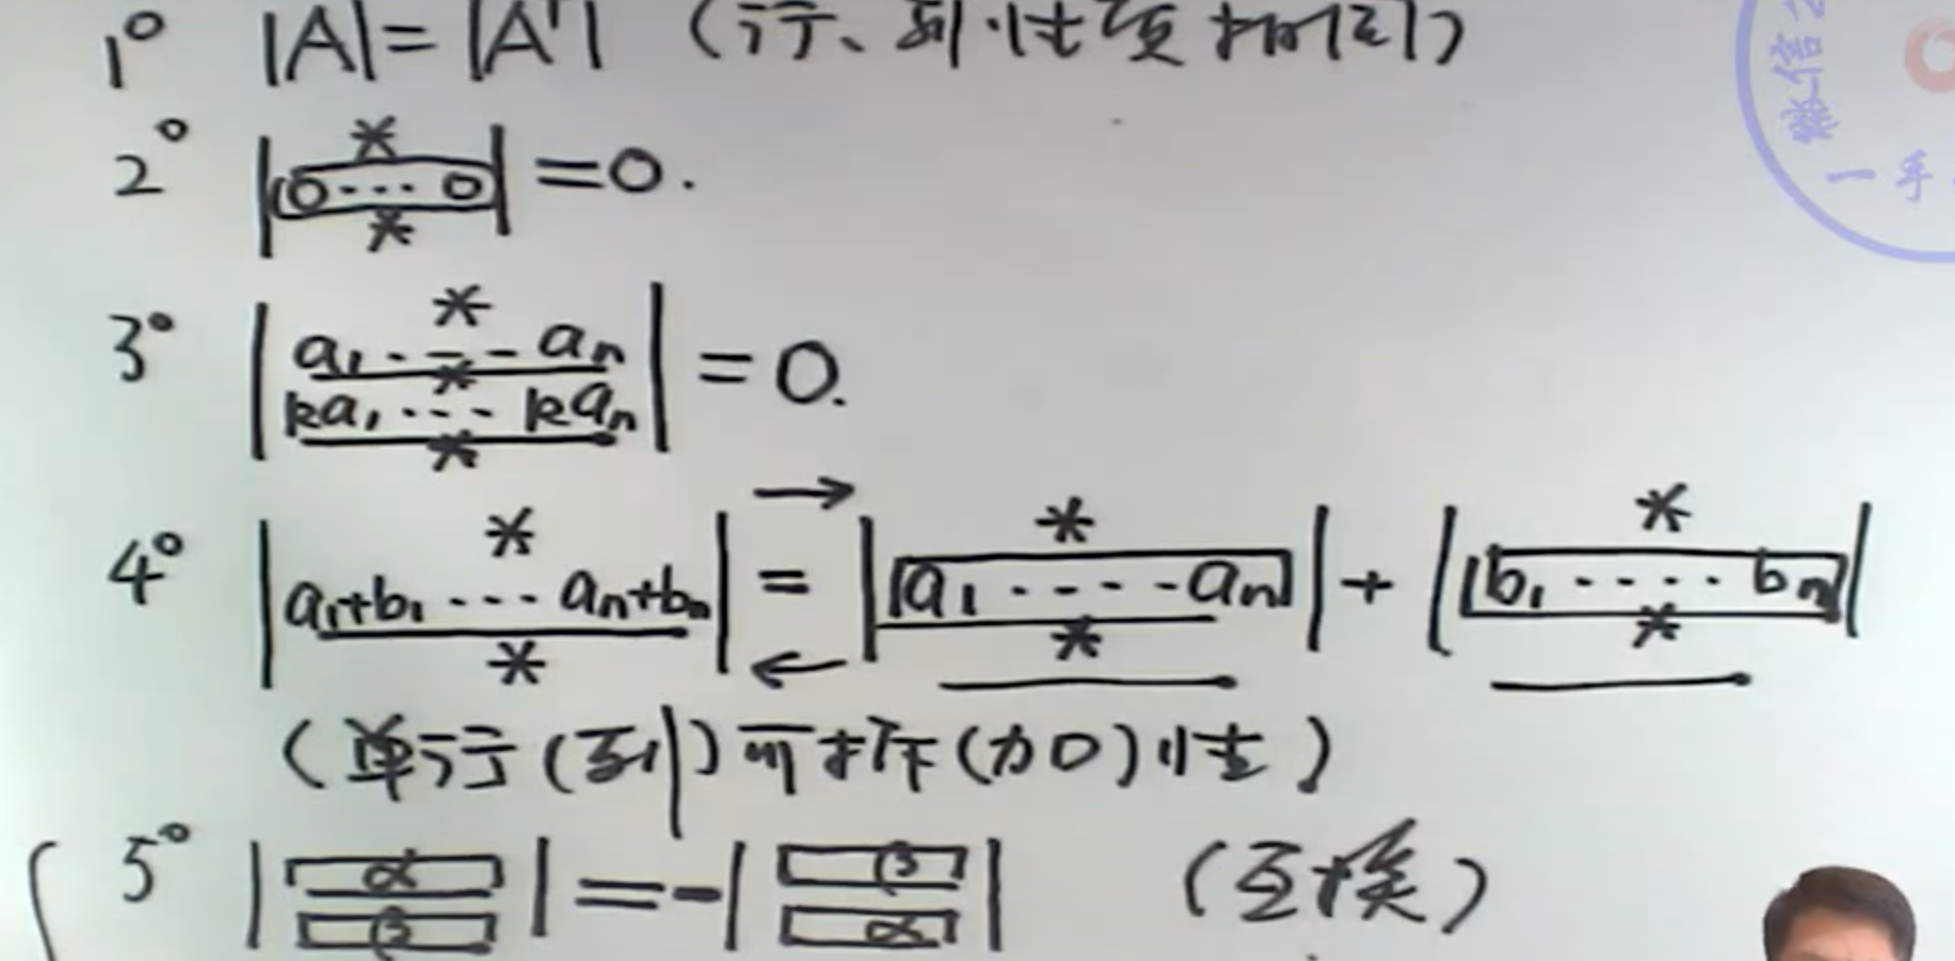 1° |A|=|Aᵀ| (行、列性质相同)
2° | * 0···0 * | =0.
3° | * a₁···aₙ * ka₁···kaₙ * | =0.
4° | * a₁+b₁···aₙ+bₙ * | → = ← | * a₁····aₙ * | + | * b₁····bₙ * |
(单行(列)可拆(加)性)
5° | α β | =-| β α | (互换)
微信公
一手